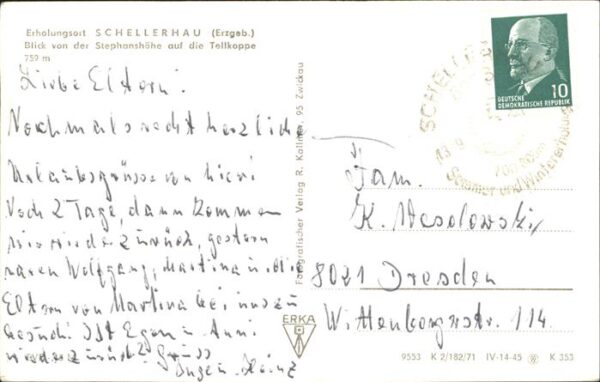 Erholungsort SCHELLERHAU (Erzgeb.)
Blick von der Stephanshöhe auf die Tellkoppe
759 m
Liebe Eltern!
Nochmals recht herzliche
Urlaubsgrüsse von hier!
Noch 2 Tage, dann kommen
wir wieder zurück, gestern
waren Wolfgang, Martina u. die
Eltern von Martina bei uns zu
Besuch. Ist Egon u. Anni
wieder zurück? Gruss
Heinz
Fotografischer Verlag R. Kallmer, 95 Zwickau
ERKA
SCHELLER
Sommer und Wintererholung
10
DEUTSCHE
DEMOKRATISCHE REPUBLIK
Fam.
K. Wesolowski
8021 Dresden
Wittenbergerstr. 114
9553 K 2/182/71 IV-14-45 K 353